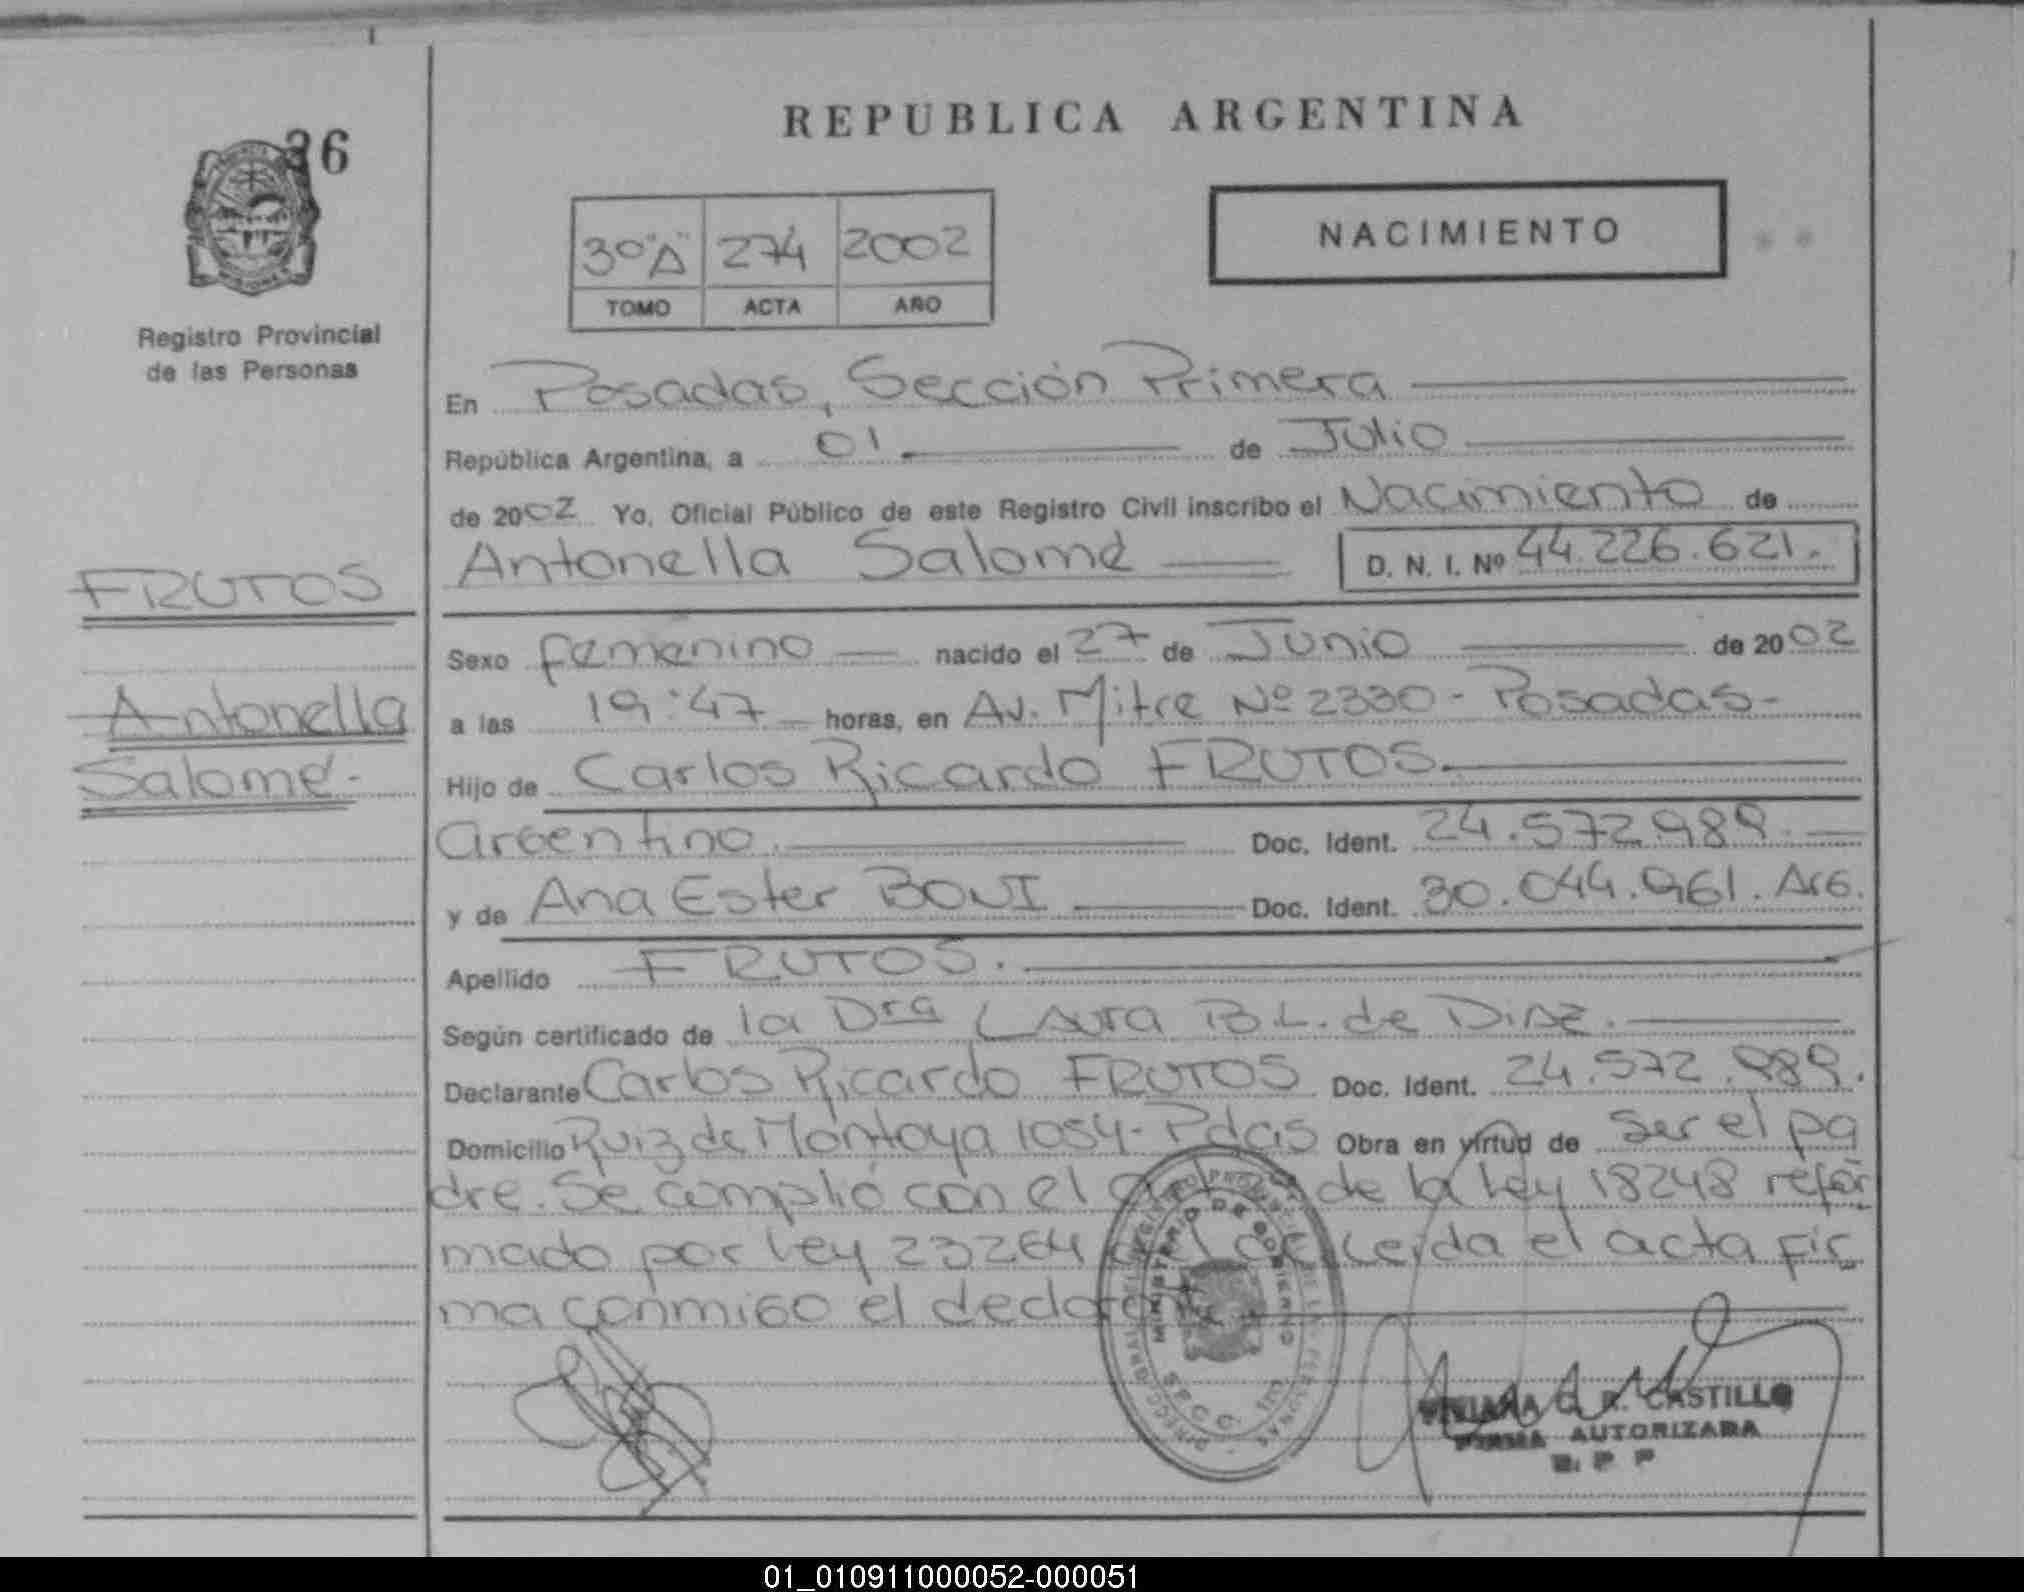 36
REPUBLICA ARGENTINA
NACIMIENTO
3º"A" 274 2002
TOMO ACTA AÑO
Registro Provincial
de las Personas
En Posadas, Sección Primera
República Argentina, a 01 de Julio
de 2002 Yo, Oficial Público de este Registro Civil inscribo el Nacimiento de
Antonella Salomé D. N. I. Nº 44.226.621.
FRUTOS
Antonella
Salomé.-
Sexo femenino nacido el 27 de Junio de 2002
a las 19:47 horas, en Av. Mitre Nº 2330 - Posadas-
Hijo de Carlos Ricardo FRUTOS.
argentino. Doc. Ident. 24.572.989.
y de Ana Ester BONI Doc. Ident. 30.044.961. Arg.
Apellido FRUTOS.
Según certificado de la Dra Laura B. L. de Diaz.
Declarante Carlos Ricardo FRUTOS Doc. Ident. 24.572.989.
Domicilio Ruiz de Montoya 1054- Pdas Obra en virtud de ser el pa
dre. Se cumplió con el de la Ley 18248 refor
mado por Ley 23264 leída el acta fir
ma conmigo el declarante
MINISTERIO DE GOBIERNO
CASTILLO
FIRMA AUTORIZADA
01_010911000052-000051